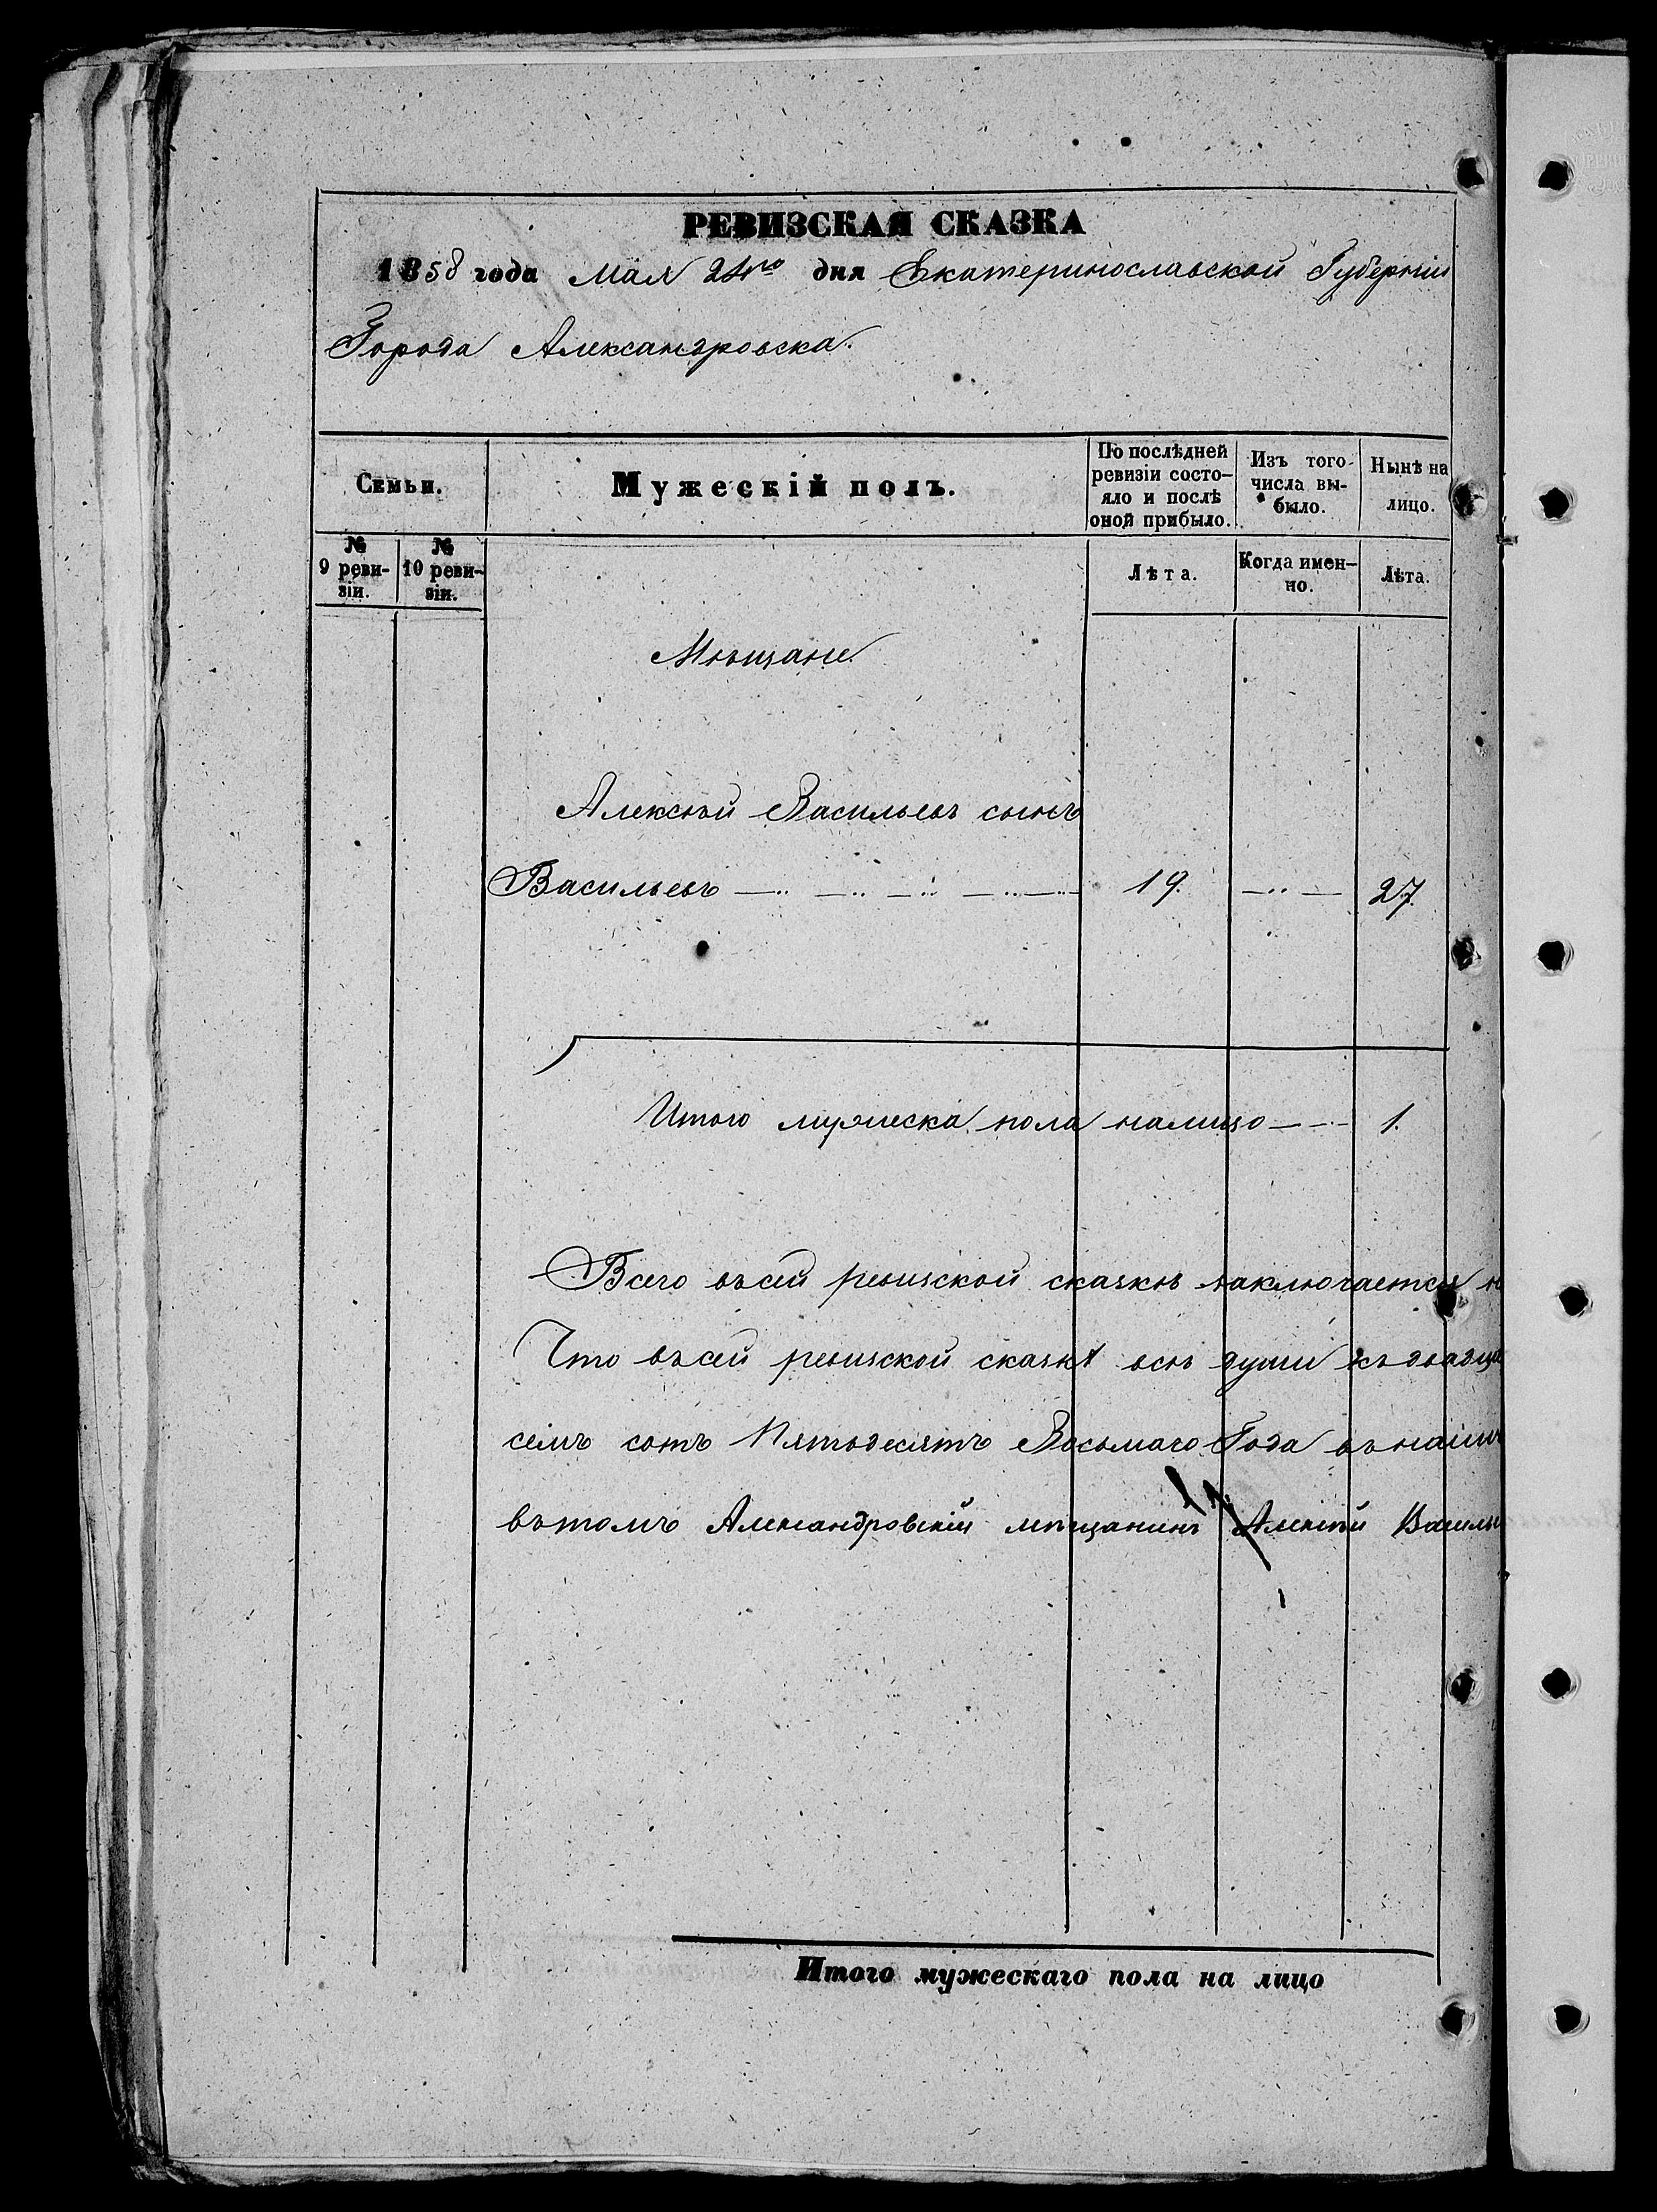 РЕВИЗСКАЯ СКАЗКА
1858 года Мая 24го дня Екатеринославской Губерніи
Города Александровска.
Семьи.
Мужескій полъ.
По послѣдней
ревизіи состо-
яло и послѣ
оной прибыло.
Изъ того
числа вы-
было.
Нынѣ на
лицо.
№
9 реви-
зіи.
№
10 реви-
зіи.
Лѣта.
Когда имен-
но.
Лѣта.
Мѣщане.
Алексѣй Васильевъ сынъ
Васильевъ 19. 27.
Итого мужеска пола налицо 1.
Всего въсей ревизской сказкѣ заключается
Что въсей ревизской сказкѣ всѣ души къ двадца
семъ сотъ Пятьдесятъ Восьмаго Года
вътомъ Александровскій мѣщанинъ Алексѣй Василь
Итого мужескаго пола на лицо